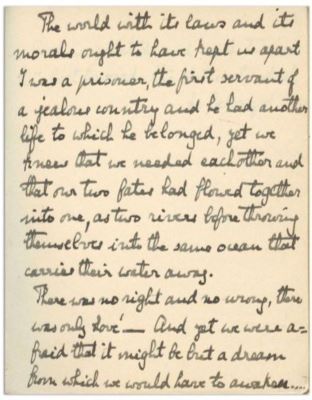 The world with its laws and its
morals ought to have kept us apart
I was a prisoner, the first servant of
a jealous country and he had another
life to which he belonged, yet we
knew that we needed eachother and
that our two fates had flowed together
into one, as two rivers before throwing
themselves into the same ocean that
carries their water away.
There was no right and no wrong, there
was only love'— And yet we were a=
fraid that it might be but a dream
from which we would have to awaken....